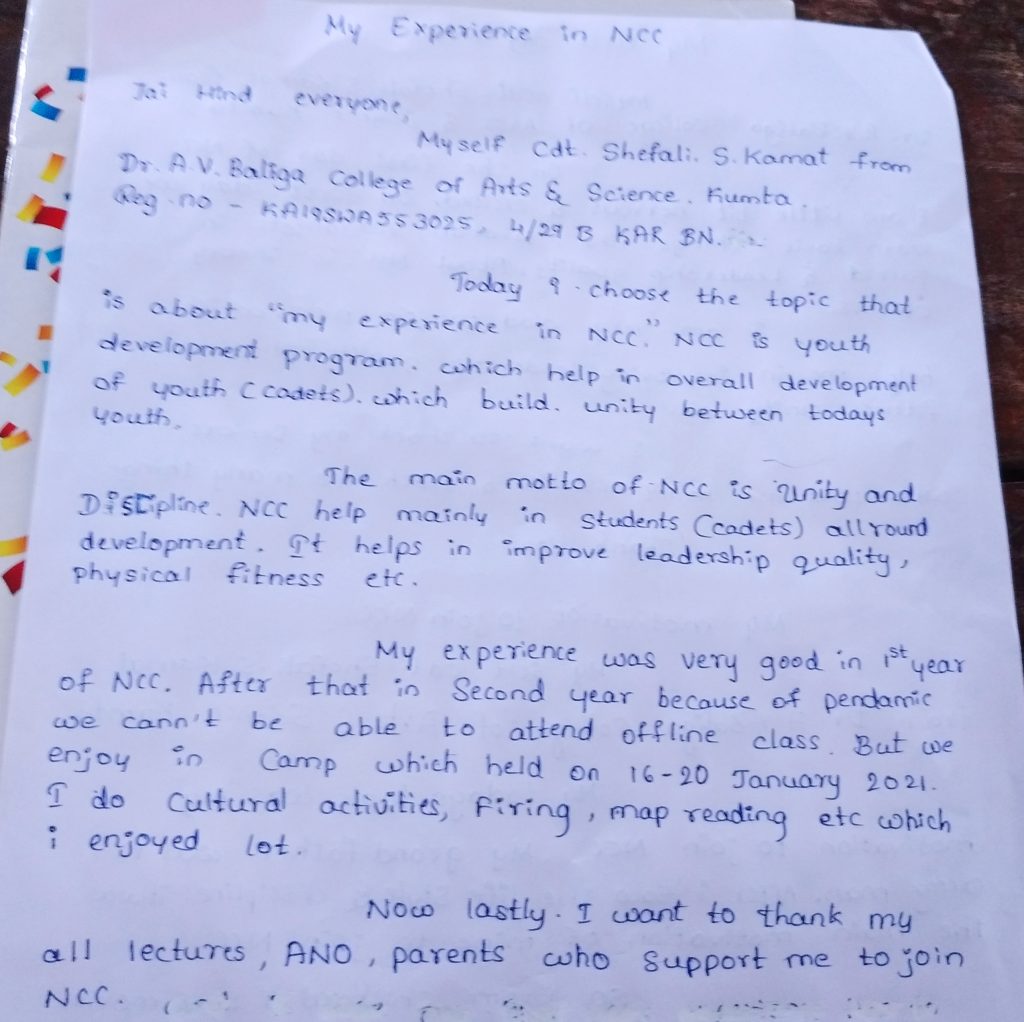 My Experience in NCC
Jai Hind everyone,
Myself Cdt. Shefali. S. Kamat from
Dr. A.V. Baliga College of Arts & Science. Kumta.
Reg. no - KA19SWA553025, 4/29 B KAR BN.
Today I choose the topic that
is about "my experience in NCC." NCC is youth
development program. which help in overall development
of youth (cadets). which build. unity between todays
youth.
The main motto of NCC is Unity and
Discipline. NCC help mainly in Students (cadets) all round
development. It helps in improve leadership quality,
physical fitness etc.
My experience was very good in 1st year
of NCC. After that in Second year because of pendamic
we cann't be able to attend offline class. But we
enjoy in Camp which held on 16-20 January 2021.
I do Cultural activities, Firing, map reading etc which
i enjoyed lot.
Now lastly. I want to thank my
all lectures, ANO, parents who support me to join
NCC.